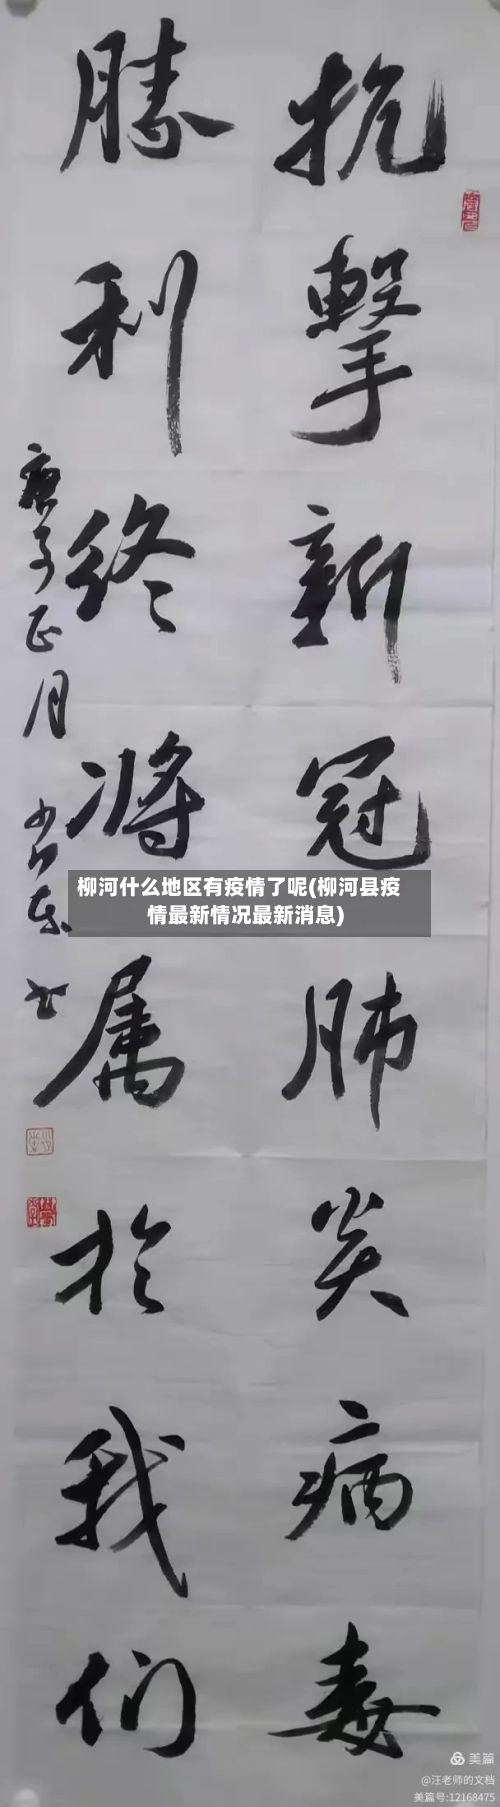 抗擊新冠肺炎病毒
勝利終將属於我们
庚子正月 少东书
柳河什么地区有疫情了呢(柳河县疫
情最新情况最新消息)
美篇
@汪老师的文档
美篇号:12168475